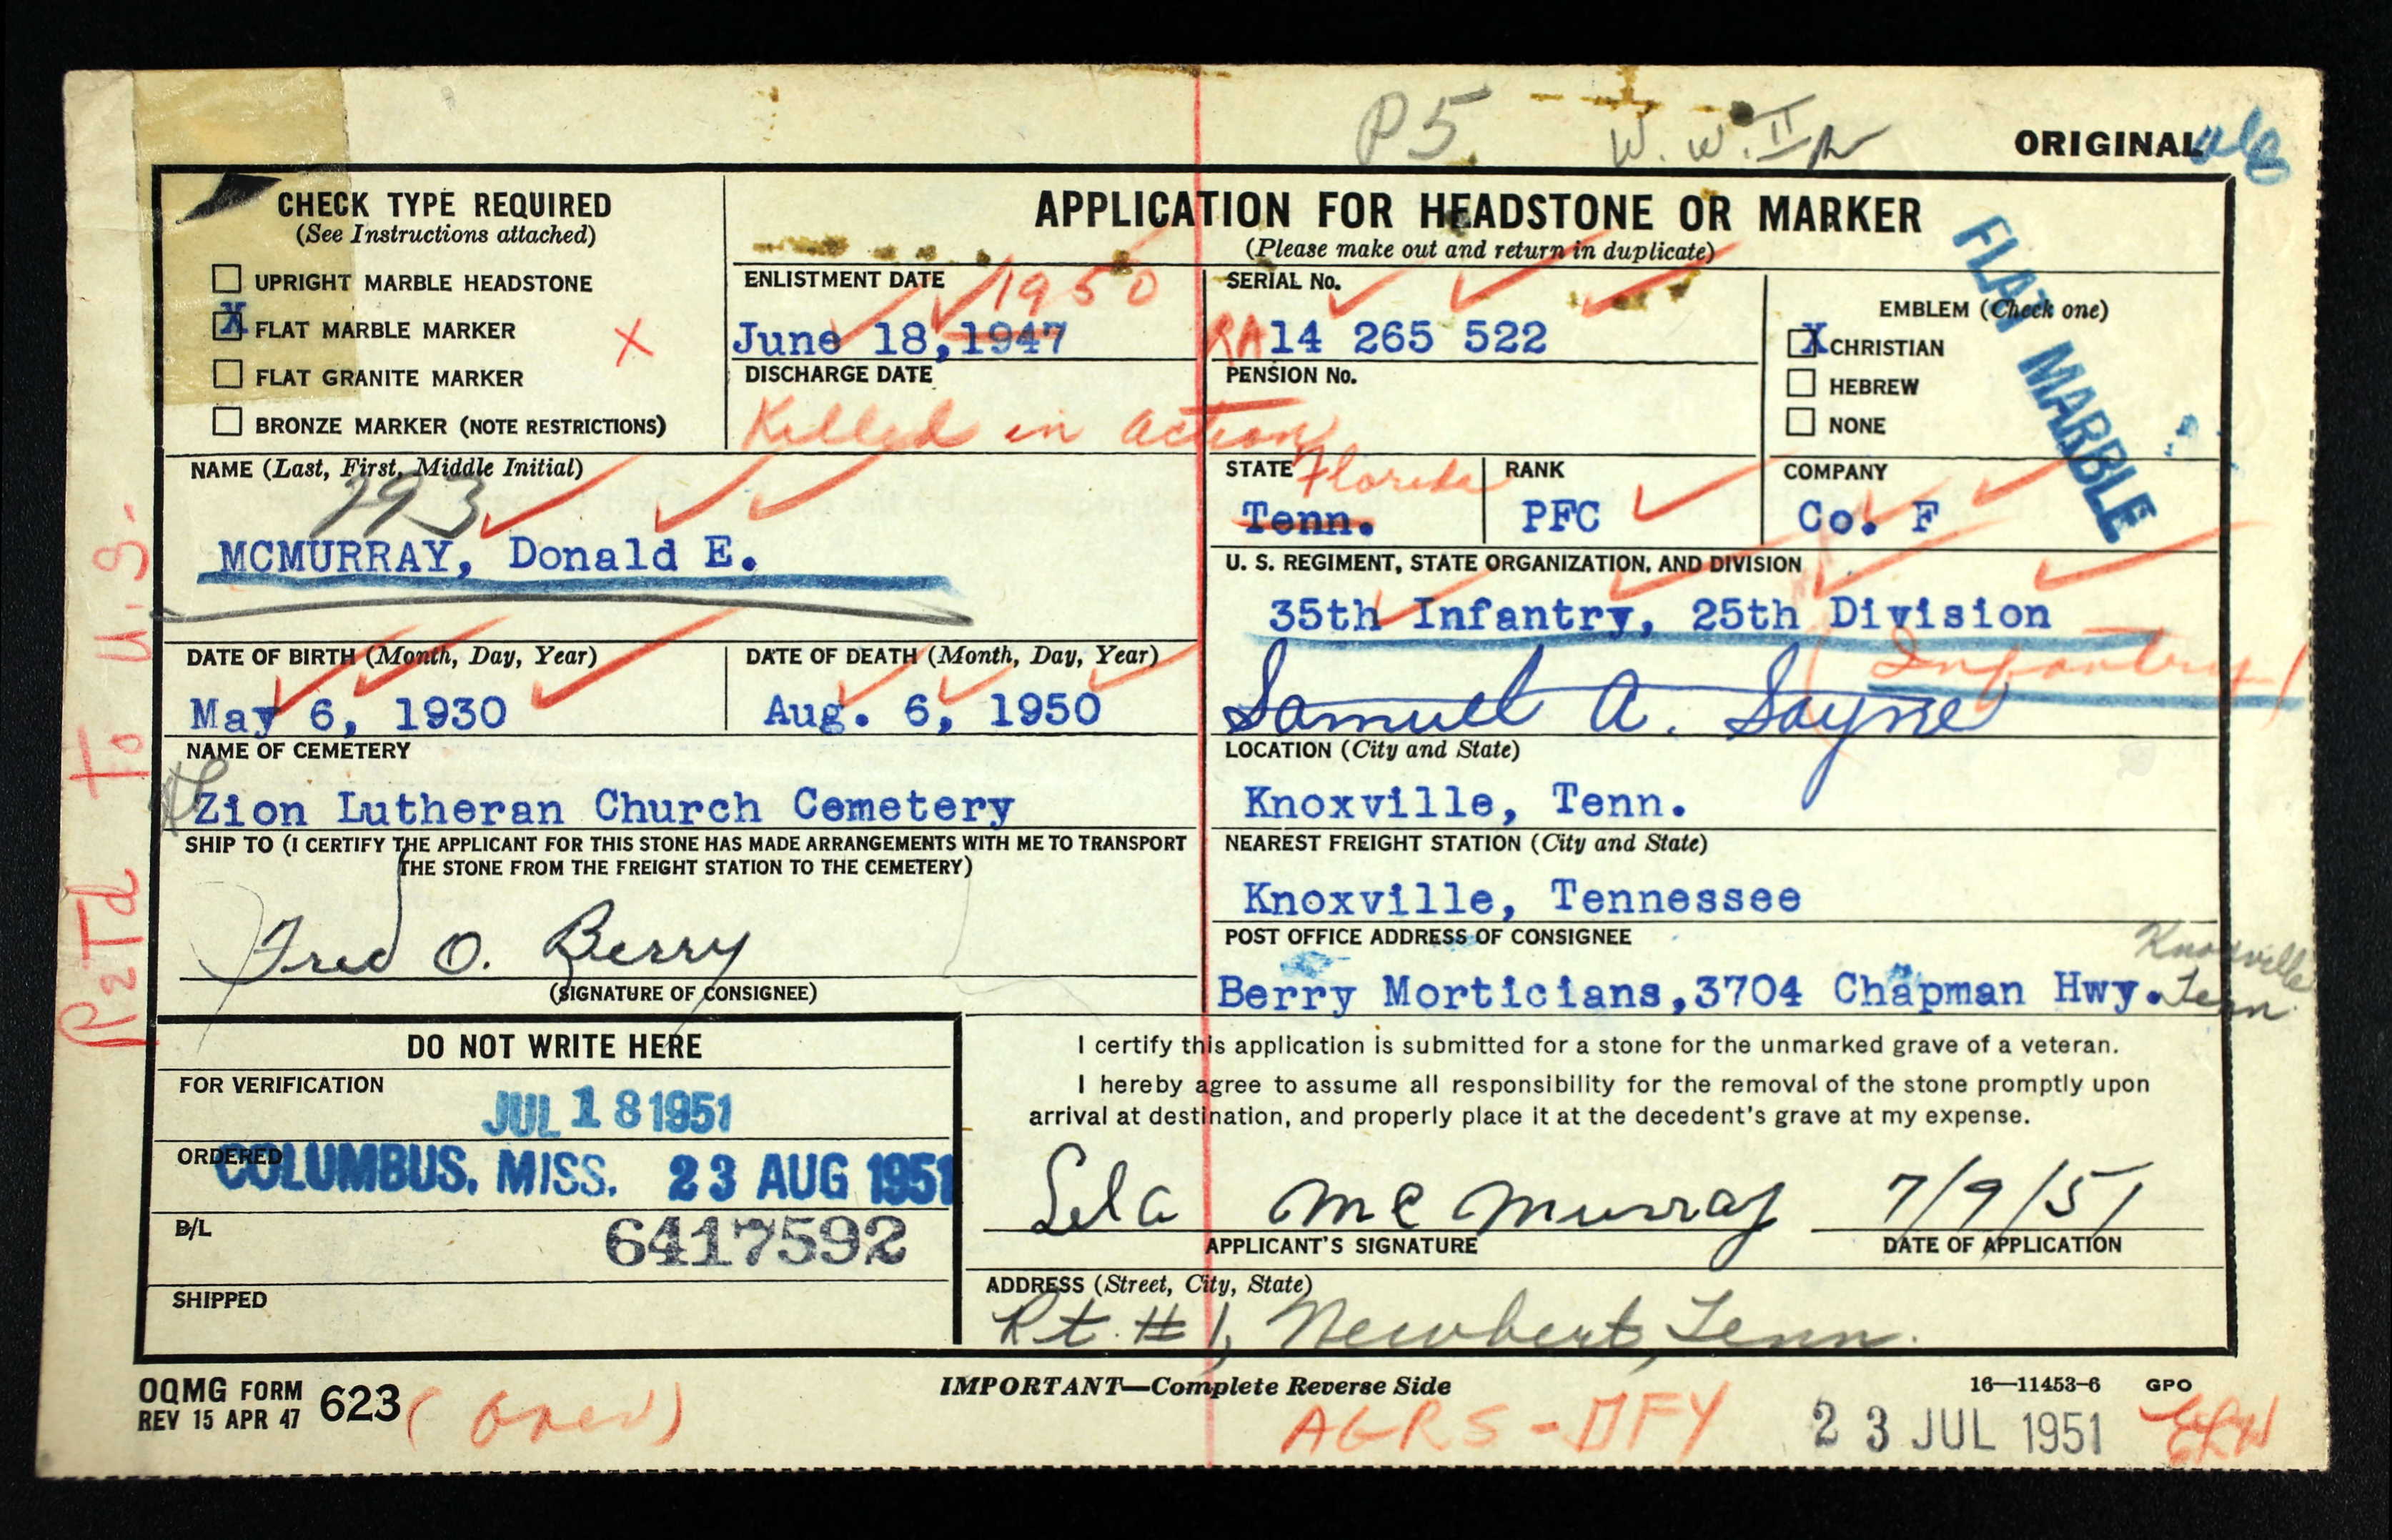 P5 W. W. II
ORIGINAL
CHECK TYPE REQUIRED
(See Instructions attached)
UPRIGHT MARBLE HEADSTONE
X FLAT MARBLE MARKER X
FLAT GRANITE MARKER
BRONZE MARKER (NOTE RESTRICTIONS)
APPLICATION FOR HEADSTONE OR MARKER
(Please make out and return in duplicate)
ENLISTMENT DATE 1950
June 18, 1947
DISCHARGE DATE
Killed in action
SERIAL No.
RA 14 265 522
PENSION No.
EMBLEM (Check one)
X CHRISTIAN
HEBREW
NONE
FLAT MARBLE
NAME (Last, First, Middle Initial)
293
MCMURRAY, Donald E.
STATE Florida
Tenn.
RANK
PFC
COMPANY
Co. F
U. S. REGIMENT, STATE ORGANIZATION, AND DIVISION
35th Infantry, 25th Division
Infantry
DATE OF BIRTH (Month, Day, Year)
May 6, 1930
DATE OF DEATH (Month, Day, Year)
Aug. 6, 1950
Samuel A. Sayne
NAME OF CEMETERY
Zion Lutheran Church Cemetery
LOCATION (City and State)
Knoxville, Tenn.
SHIP TO (I CERTIFY THE APPLICANT FOR THIS STONE HAS MADE ARRANGEMENTS WITH ME TO TRANSPORT
THE STONE FROM THE FREIGHT STATION TO THE CEMETERY)
Fred O. Berry
(SIGNATURE OF CONSIGNEE)
NEAREST FREIGHT STATION (City and State)
Knoxville, Tennessee
POST OFFICE ADDRESS OF CONSIGNEE
Berry Morticians,3704 Chapman Hwy.
Knoxville
Tenn.
R2Td To U.S.
DO NOT WRITE HERE
FOR VERIFICATION
JUL 18 1951
ORDERED
COLUMBUS. MISS. 23 AUG 1951
B/L
6417592
SHIPPED
I certify this application is submitted for a stone for the unmarked grave of a veteran.
I hereby agree to assume all responsibility for the removal of the stone promptly upon
arrival at destination, and properly place it at the decedent's grave at my expense.
Lela McMurray 7/9/51
APPLICANT'S SIGNATURE DATE OF APPLICATION
ADDRESS (Street, City, State)
Rt. #1, Newbert, Tenn.
OQMG FORM 623
REV 15 APR 47
(over)
IMPORTANT—Complete Reverse Side
16—11453-6 GPO
AGRS - DFY
23 JUL 1951
ERW